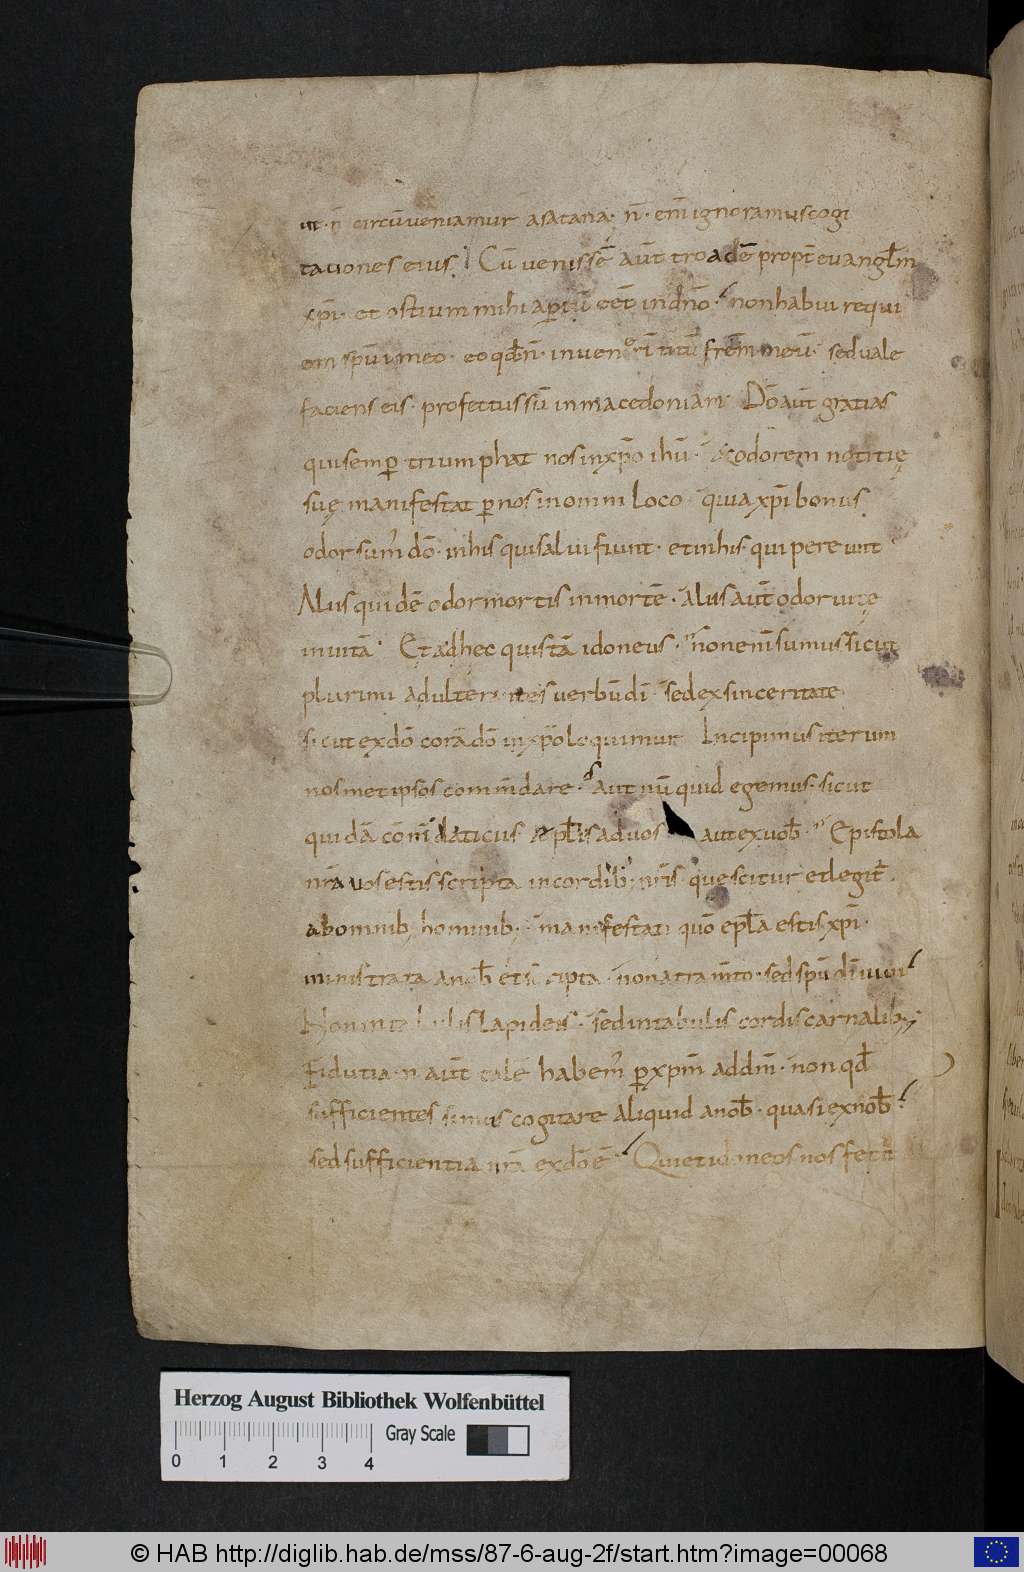 ut · n̄ circūveniamur asatana · n̄ · enī ignoramus cogi
tationes eius Cū venissē aūt troadē propt̄ evangl̄m
xp̄i · et ostium mihi aptū eēt in dn̄o · non habui requi
em sp̄u meo · eo qd̄ n̄ · inven tītū frēm meū · sed vale
faciens eis · profectus sū in macedoniam Dō aūt gratias
qui semp̱ triumphat nos in xp̄o ihū · & odorem notitię
suę manifestat p̱ nos in omni loco · quia xp̄i bonus
odor sum̄ dō · in his qui salvi fiunt · et in his · qui pereunt
Aliis quidē odor mortis in mortē · aliis aūt odor vitę
in vitā · Et ad hec quis tā idoneus · non enī sumus sicut
plurimi adulter ntes verbū dī · sed ex sinceritate
sicut ex dō corā dō in xp̄o loquimur Incipimus iterum
nosmet ipsos com̄dare · Aut nūquid egemus · sicut
quidā com̄daticiis epl̄is ad vos aut ex vob̄ · Epistola
nr̄a vos estis scripta in cordib; nr̄is · que scitur et legit̄
ab omnib; hominib; · manifestati quō epl̄a estis xp̄i ·
ministrata a nob̄ et scripta · non atram̄to · sed sp̄u dī vivi
Non in tabulis lapideis · sed in tabulis cordis carnalib;
Fidutia n aūt talē habem̄ p̱ xp̄m ad dm̄ · non qd̄
sufficientes simus cogitare aliquid a nob̄ · quasi ex nob̄
sed sufficientia nr̄a ex dō ē Qui et idoneos nos fecit
Herzog August Bibliothek Wolfenbüttel
Gray Scale
0 1 2 3 4
© HAB http://diglib.hab.de/mss/87-6-aug-2f/start.htm?image=00068